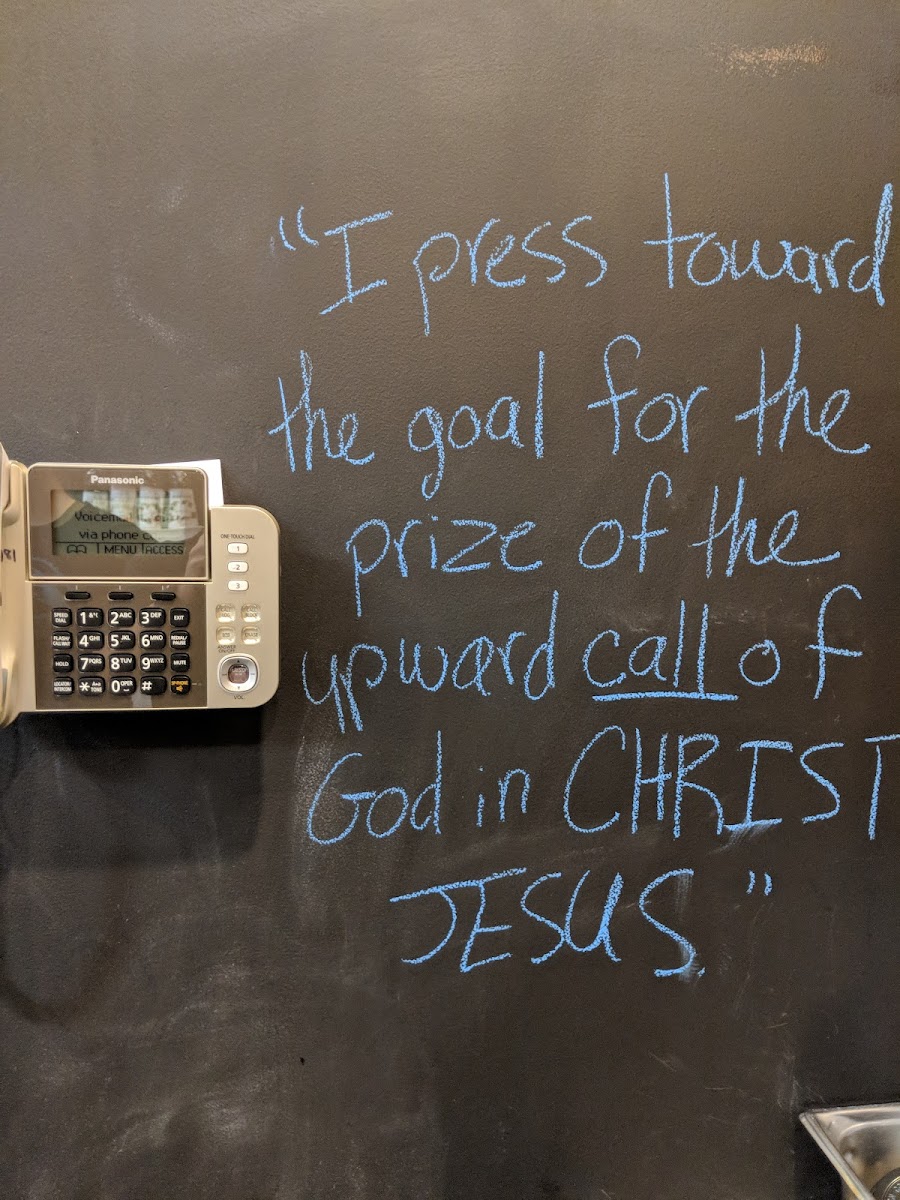 "I press toward
the goal for the
prize of the
upward call of
God in CHRIST
JESUS."
Panasonic
via phone
MENU ACCESS
ONE TOUCH DIAL
1
2
3
SPEED DIAL 1 2 ABC 3 DEF EXIT
4 GHI 5 JKL 6 MNO REDIAL/PAUSE
HOLD 7 PQRS 8 TUV 9 WXYZ MUTE
* TONE 0 OPER #
VOL.